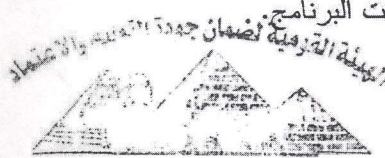 ت البرنامج.
الهيئة القومية لضمان جودة التعليم والاعتماد